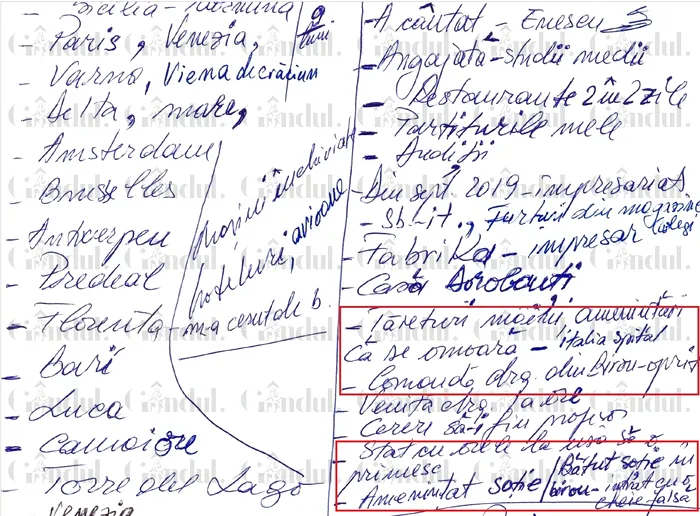 Sicilia - Taormina
- Paris, Venezia, 9 luni
- Varna, Viena de crăciun
- Delta, mare,
- Amsterdam
- Bruxelles
- Antwerpen
- Predeal
- Florența - m-a cerut de b.
- Bari
- Luca
- Camaiore
- Torre del Lago
- Venezia
mașini închiriate
hoteluri, avioane
- A cântat - Enescu
- Angajată - studii medii
- Restaurante 2 în 2 zile
- Partiturile mele
- Audiții
- Din sept. 2019 - impresariat
- Sb - it., Furturi din magazine
colegi
- Fabrika - impresar
- Casa Dorobanți
- Tăieturi mâini, amenințări
Că se omoară - italia spital
- Comandă drg. din Birou - oprit
- Venită drg. la ore
- Cereri să-i fiu propriu
- Stat cu orele la ușă să o
primesc
- Amenințat soție / Bătut soție în
birou - intrat cu o
cheie falsă
Gândul.